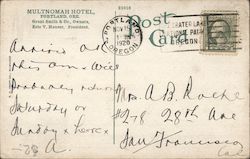 MULTNOMAH HOTEL,
PORTLAND, ORE.
Grant Smith & Co., Owners,
Eric V. Hauser, President.
Post
Card
PORTLAND
NOV
1920
OREGON
CRATER LA
IONAL PA
OREGON
Arrived
this a.m. Will
probably return
Saturday or
Sunday
A.
Mrs. A B Roche
278 28th Ave
San Francisco
Cal